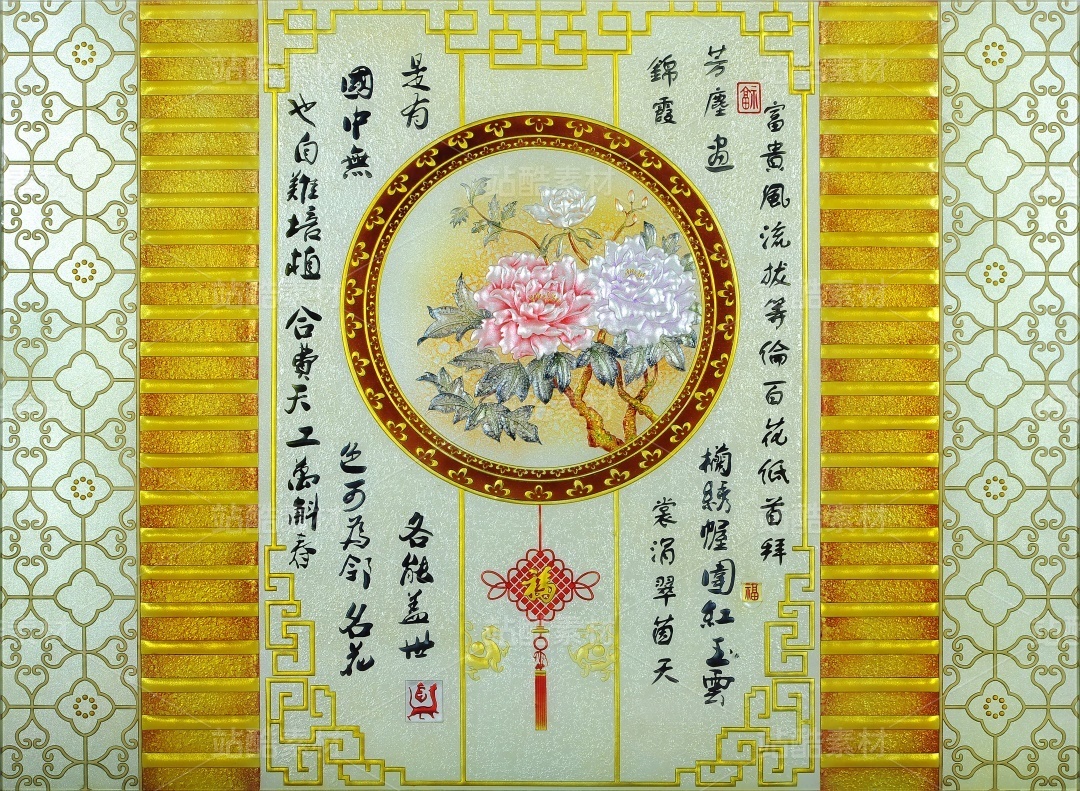 富貴風流拔等倫百花低首拜
芳塵畫欄綉幄圍紅玉雲
錦霞裳涓翠茵天
是有各能盖世
國中無色可為鄰名花
也自難培植合費天工萬斛春
福
福
站酷素材